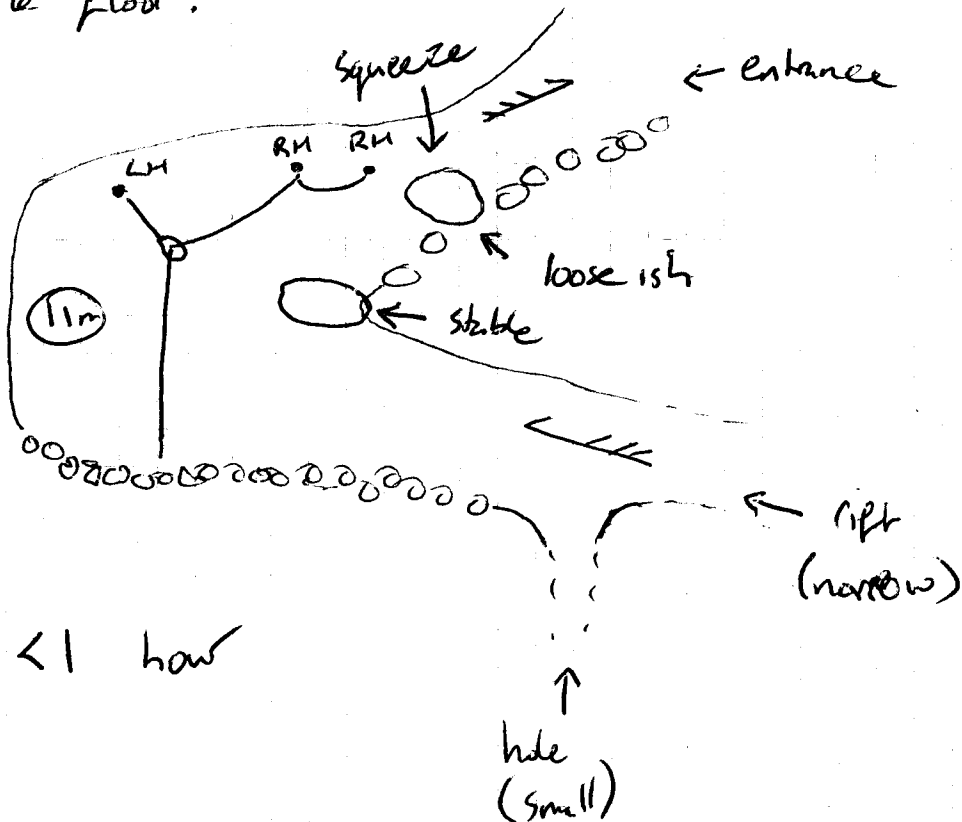 floor.
squeeze
← entrance
LH
RH RH
loose ish
11m
stable
rift
(narrow)
<1 hour
hole
(small)